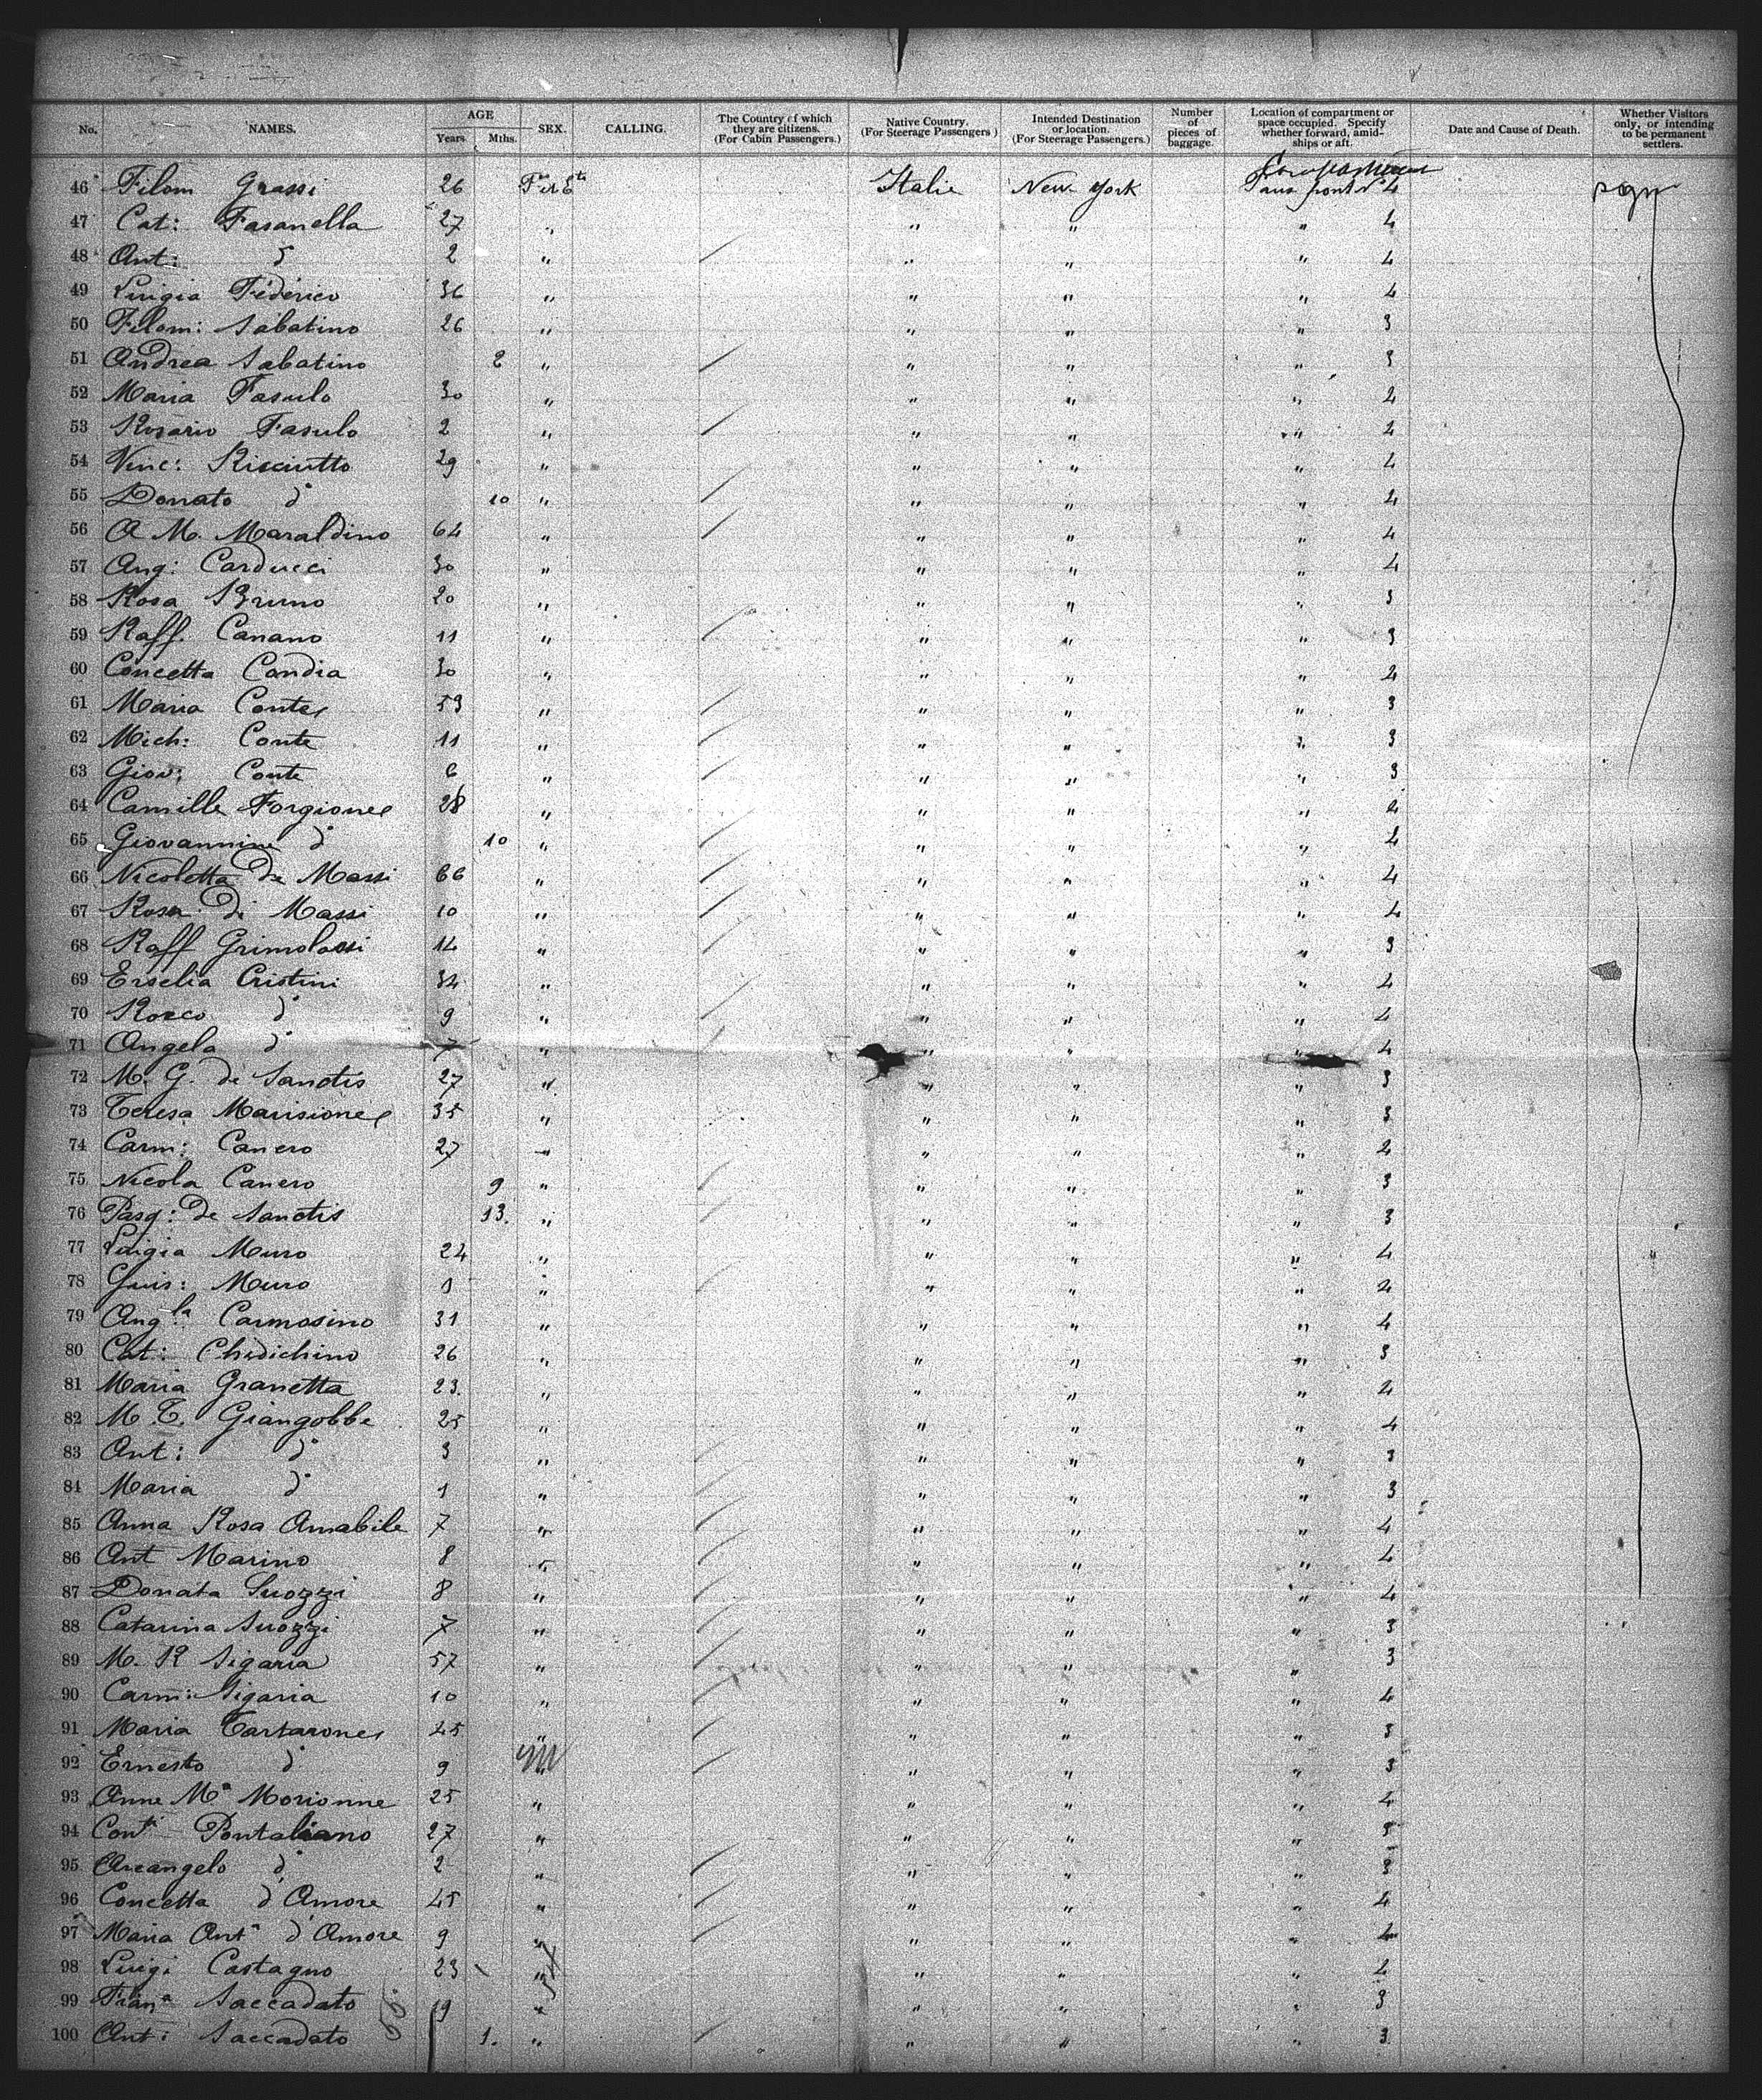 No. NAMES. AGE Years Mths. SEX. CALLING. The Country of which they are citizens. (For Cabin Passengers.) Native Country. (For Steerage Passengers) Intended Destination or location. (For Steerage Passengers.) Number of pieces of baggage. Location of compartment or space occupied. Specify whether forward, amidships or aft. Date and Cause of Death. Whether Visitors only, or intending to be permanent settlers.
Compartiment
46 Filom Grassi 26 F et Ets Italie New York pont No 4 pgn
47 Cat: Fasanella 27 " " " " 4
48 Ant: d° 2 " " " " 4
49 Luigia Féderico 36 " " " " 4
50 Filom: Sabatino 26 " " " " 3
51 Andrea Sabatino 2 " " " " 3
52 Maria Fasulo 30 " " " " 4
53 Rosario Fasulo 2 " " " " 4
54 Vinc: Risciutto 29 " " " " 4
55 Donato d° 10 " " " " 4
56 A M. Maraldino 64 " " " " 4
57 Ang: Carducci 30 " " " " 4
58 Rosa Bruno 20 " " " " 3
59 Raff. Canano 11 " " " " 3
60 Concetta Candia 30 " " " " 4
61 Maria Conte 59 " " " " 3
62 Mich: Conte 11 " " " " 3
63 Giov: Conte 6 " " " " 3
64 Camille Forgione 28 " " " " 4
65 Giovannine d° 10 " " " " 4
66 Nicoletta de Massi 66 " " " " 4
67 Rosa di Massi 10 " " " " 4
68 Raff 14 " " " " 3
69 Erselia Cristini 34 " " " " 4
70 Rocco d° 9 " " " " 4
71 Angela d° 7 " " " " 4
72 M. G. de Sanctis 27 " " " " 3
73 Teresa Marisione 35 " " " " 3
74 Carm: Canero 27 " " " " 4
75 Nicola Canero 9 " " " " 3
76 Pasq: de Sanctis 13. " " " " 3
77 Luigia Muro 24 " " " " 4 "
78 Guis: Muro 1 " " " " 4
79 Ang.la Carmosino 31 " " " " 4
80 Cat: Chidichino 26 " " " " 3
81 Maria Granetta 23. " " " " 4
82 M T. Giangobbe 25 " " " " 4
83 Ant: d° 3 " " " " 3
84 Maria d° 1 " " " " 3
85 Anna Rosa Amabile 7 " " " " 4
86 Ant Marino 8 " " " " 4
87 Donata Suozzi 8 " " " " 4
88 Catarina Suozzi 7 " " " " 3
89 M. R Sigaria 57 " " " " 3
90 Carm: Sigaria 10 " " " " 4
91 Maria Tartarone 45 " " " " 3
92 Ernesto d° 9 M " " " 3
93 Anne Ma Morionne 25 " " " " 4
94 Conta Pontaliano 27 " " " " 3
95 Arcangelo d° 2 " " " " 3
96 Concetta d'Amore 45 " " " " 4
97 Maria Anta d'Amore 9 " " " " 4
98 Luigi Castagno 23 " " " " 4
99 Frana Saccadato 19 " " " " 3
100 Ant: Saccadato 1. " " " " 3